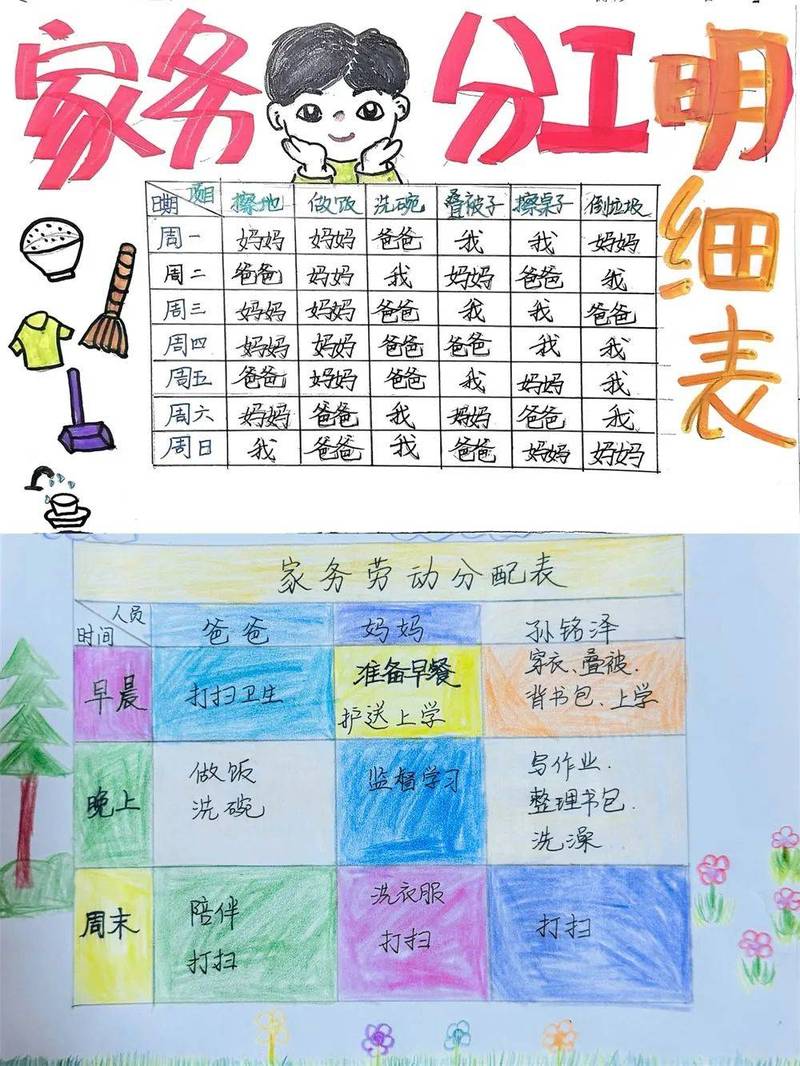 家务 分工明
细
表
日期 项目 擦地 做饭 洗碗 叠被子 擦桌子 倒垃圾
周一 妈妈 妈妈 爸爸 我 我 妈妈
周二 爸爸 妈妈 我 妈妈 爸爸 我
周三 妈妈 妈妈 爸爸 我 我 爸爸
周四 妈妈 妈妈 爸爸 爸爸 我 我
周五 爸爸 妈妈 爸爸 我 妈妈 我
周六 妈妈 爸爸 我 妈妈 爸爸 我
周日 我 爸爸 我 爸爸 妈妈 妈妈
家务劳动分配表
人员
时间
爸爸 妈妈 孙铭泽
早晨
打扫卫生
准备早餐
护送上学
穿衣、叠被.
背书包、上学
晚上
做饭
洗碗
监督学习
写作业.
整理书包.
洗澡
周末
陪伴
打扫
洗衣服
打扫
打扫